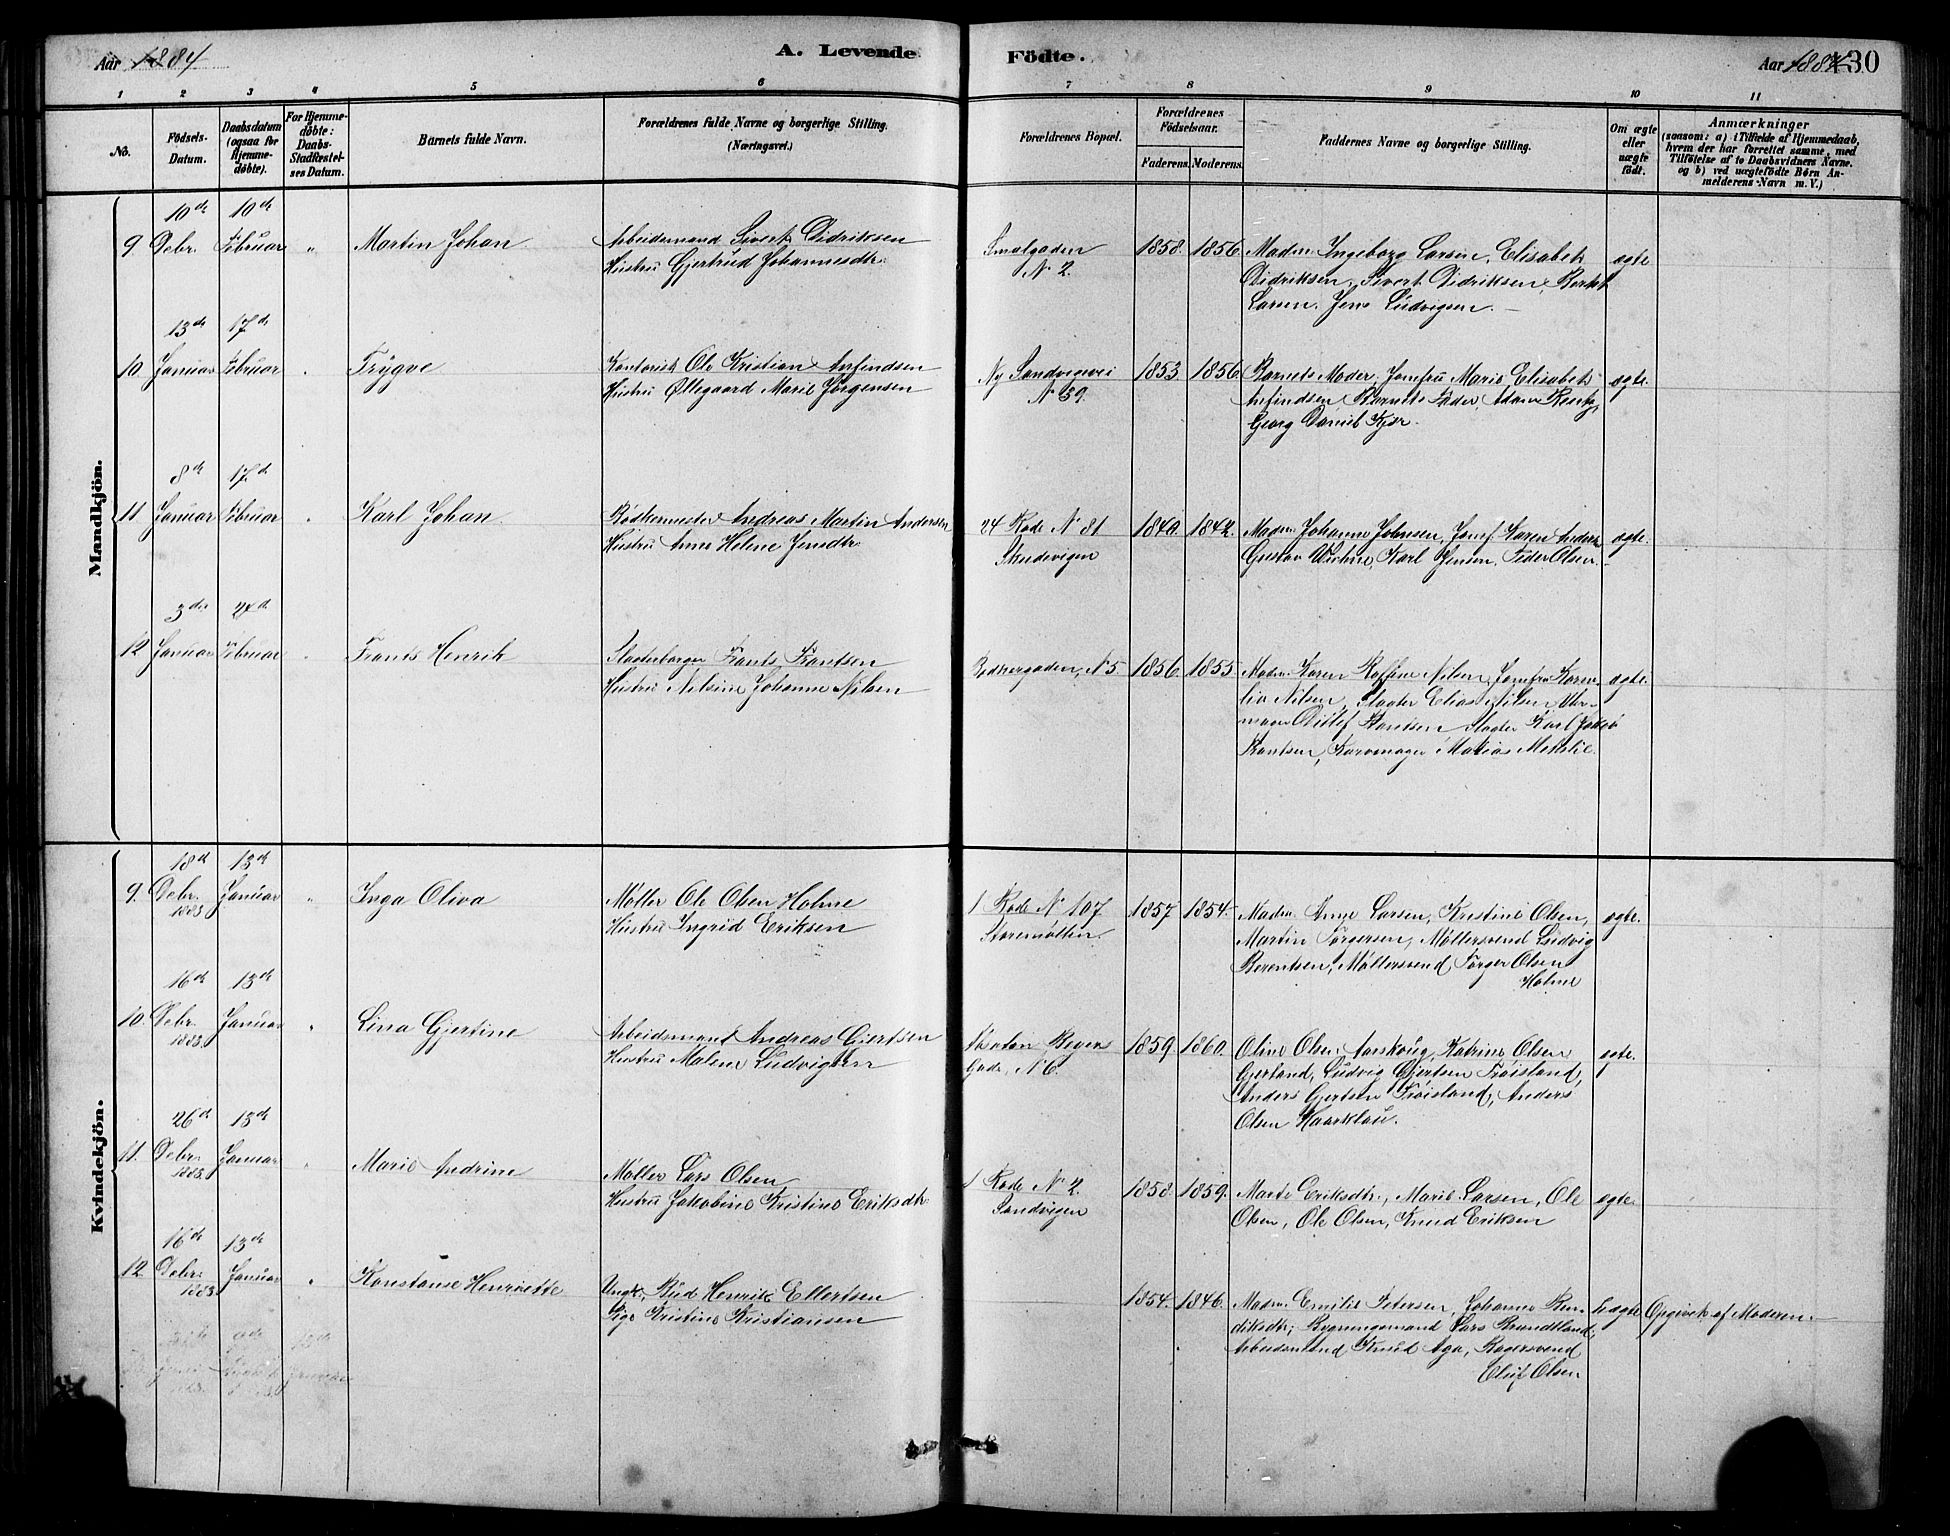 Aar 1884
A. Levende
Födte.
Aar 1884
130
1 2 3 4 5 6 7 8 9 10 11
No.
Födsels-
Datum.
Daabsdatum
(ogsaa for
Hjemme-
døbte).
For Hjemme-
døbte:
Daabs-
Stadfæstel-
ses Datum.
Barnets fulde Navn.
Forældrenes fulde Navne og borgerlige Stilling.
(Næringsvei.)
Forældrenes Bopæl.
Forældrenes
Födselsaar.
Faderens. Moderens.
Faddernes Navne og borgerlige Stilling.
Om ægte
eller
uægte
födt.
Anmærkninger
(saasom: a) i Tilfælde af Hjemmedaab,
hvem der har forrettet samme, med
Tilföielse af to Daabsvidners Navne.
og b) ved uægtefödte Børn An-
melderens Navn m. V.)
Mandkjön.
10de 10de
9 Debr. Februar " Martin Johan
Arbeidsmand Sivert Didriksen
Hustru Gjertrud Johannesdtr.
Smalgaden
N 2.
1858. 1856.
Madm. Ingeborg Larsen, Elisabeth
Didriksen, Sivert Didriksen,
Larsen, Jens Ludvigsen.
ægte
13de 17de
10. Januar Februar Trygve
Kontorist Ole Kristian Anfindsen
Hustru Øllegaard Marie Jørgensen
Ny Sandvigsvei
N 59.
1853. 1856.
Barnets Moder, Jomfru Marie Elisabeth
Anfindsen, Barnets Fader, Adam
Georg Daniel
ægte.
8de 17.d
11 Januar Februar Karl Johan.
Bødkermester Andreas Martin Andersen
Hustru Anne Helene Jensdtr.
24 Rode N 81
Skudevigen
1840. 1842.
Madm. Johanne Johnsen, Jomf. Karen Anders
Gustav Karl Jensen, Peder Olsen.
ægte.
3die 24d.
12 Januar Februar Frants Henrik
Slagterborger Frants Frantsen
Hustru Nilsine Johanne Nilsen
Bødkergaden, N 5.
1856. 1855.
Madm. Karen Nilsen, Jomfru Karo-
lia Nilsen, Slagter Elias Nilsen, Uhr-
mager Ditlef Frantsen, Slagter Karl Jakob
Frantsen, Kurvmager Matias
ægte.
Kvindekjön.
18d 13de
9. Debr. Januar " Inga Oliva
1883
Møller Ole Olsen Holme
Hustru Ingrid Eriksen
1 Rode N 107
Storemøllen
1857 1854.
Madm. Anne Larsen, Kristine Olsen,
Martin Torgersen, Møllersvend Ludvig
Berentsen, Møllersvend Torger Olsen
Holme
ægte.
16de 13de
10. Debr. Januar " Lina Gjertine
1883.
Arbeidsmand Andreas Gjertsen
Hustru Malene Ludvigsen
Gade, N 6.
1859 1860.
Oline Olsen Aarskoug, Katrine Olsen
Gjerland, Ludvig Gjertsen Frøisland,
Anders Gjertsen Frøisland, Anders
Olsen Haarklau.
ægte.
26d 13de
11. Debr. Januar " Marie Andrine
1883.
Møller Lars Olsen
Hustru Jakobine Kristine Eriksdtr.
1 Rode N 2.
Sandvigen
1858 1859.
Marte Eriksdtr., Marie Larsen, Ole
Olsen, Ole Olsen, Knud Eriksen
ægte.
16de 13de
12. Debr. Januar " Konstanse Henriette
1883.
Ungk. Bud Henrik Ellertsen
Pige Kristine Kristiansen
1854. 1846.
Madm. Emilie Petersen, Johanne Ben-
diksdtr, Bygningsmand Lars Brundtland,
Arbeidsmand Knud Aga, Bagersvend
Oluf Olsen
Uægte Opgivet af Moderen.